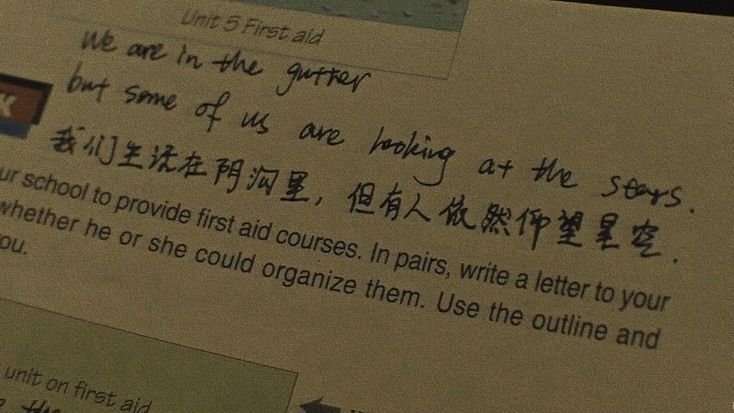 Unit 5 First aid
we are in the gutter
but some of us are looking at the stars.
我们生活在阴沟里，但有人依然仰望星空.
K
ur school to provide first aid courses. In pairs, write a letter to your
whether he or she could organize them. Use the outline and
ou.
unit on first aid